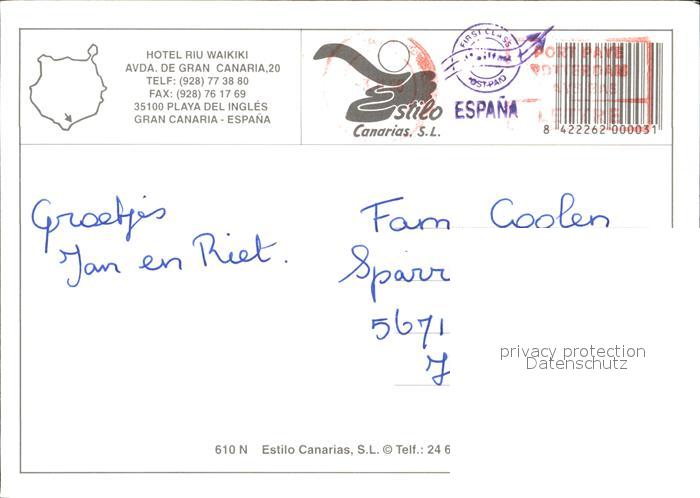 HOTEL RIU WAIKIKI
AVDA. DE GRAN CANARIA,20
TELF: (928) 77 38 80
FAX: (928) 76 17 69
35100 PLAYA DEL INGLÉS
GRAN CANARIA - ESPAÑA
Estilo
Canarias, S.L.
FIRST CLASS
POST-PAID
ESPAÑA
PORT PAYÉ
ROTTERDAM
PAYS-BAS
LETTRE
8 422262 000031
Groetjes
Jan en Riet.
Fam Coolen
Sparr
5671
J
privacy protection
Datenschutz
610 N Estilo Canarias, S.L. © Telf.: 24 6